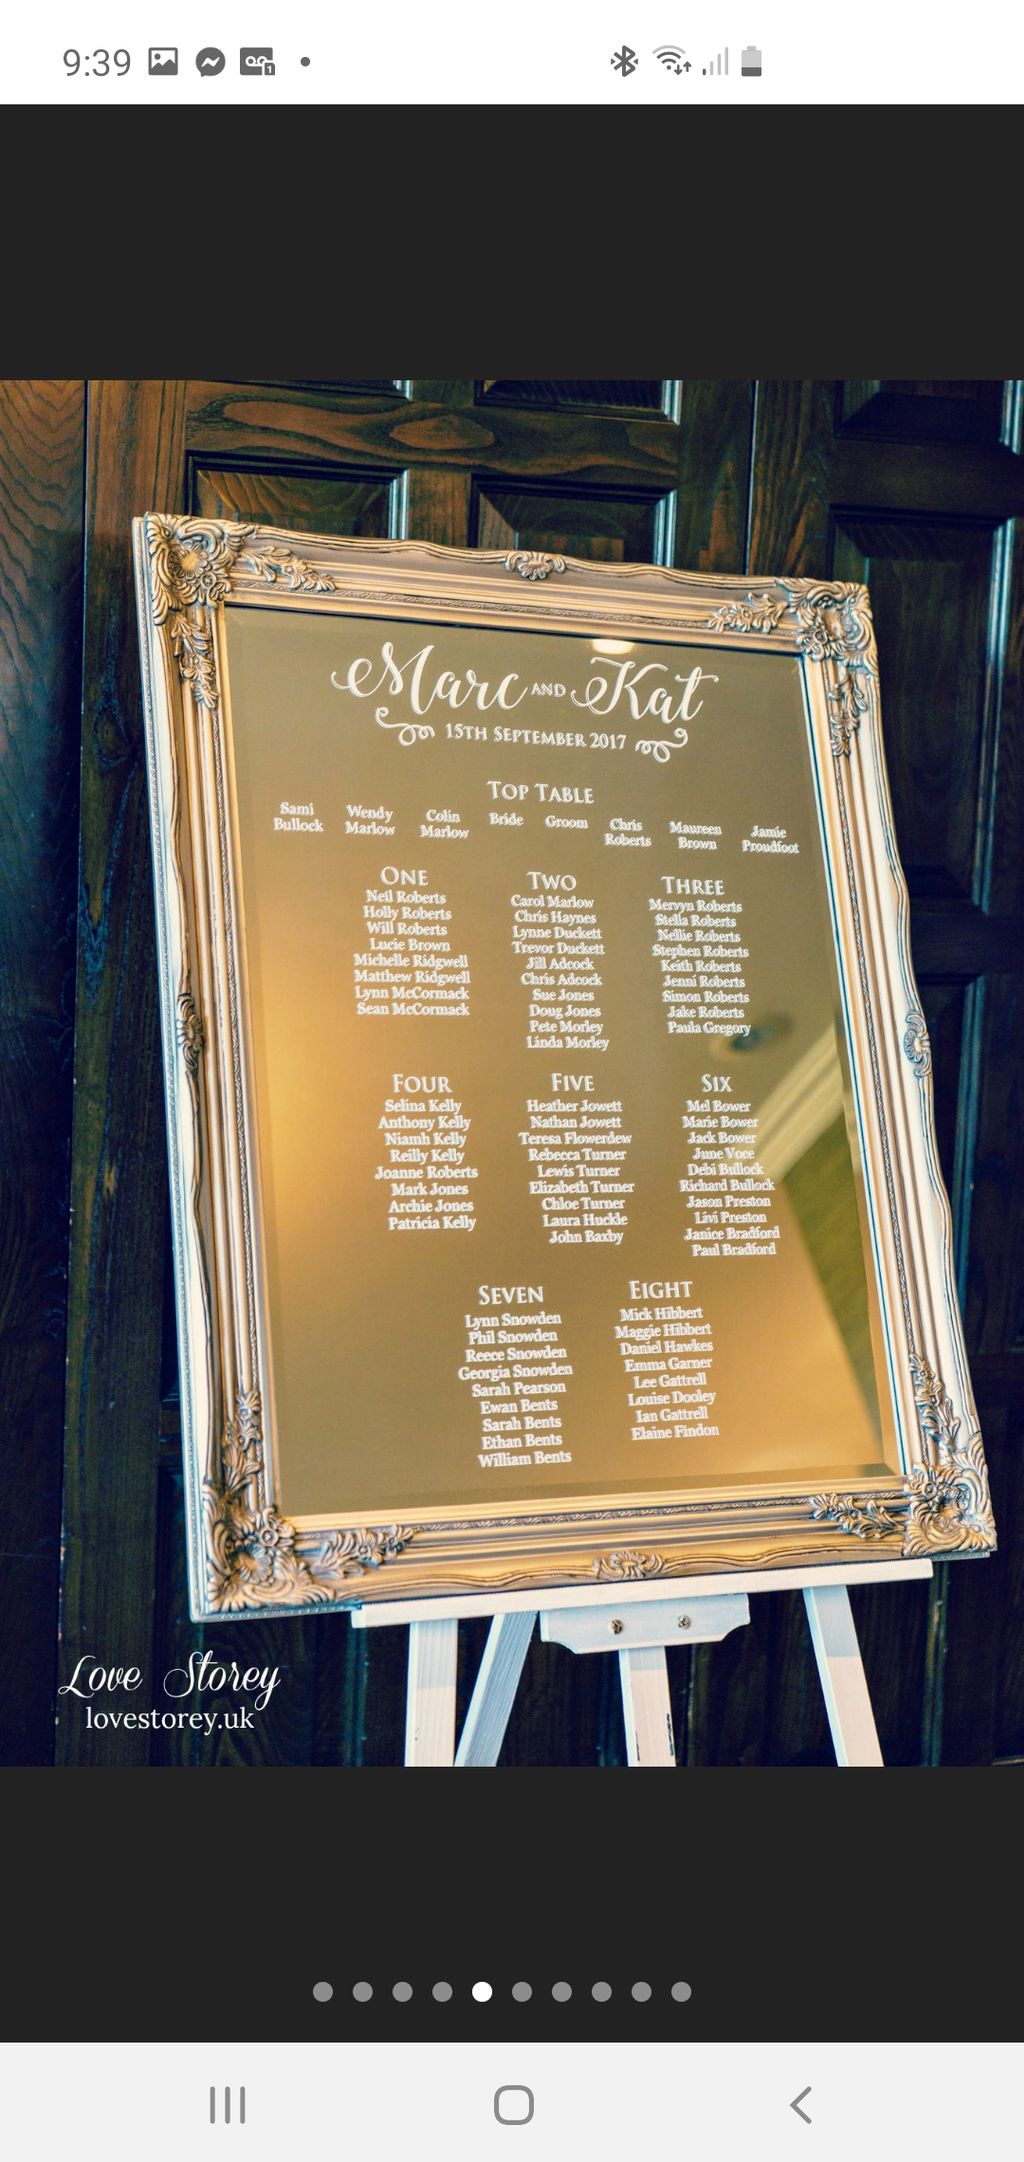 9:39
Marc AND Kat
15TH SEPTEMBER 2017
TOP TABLE
Sami Bullock
Wendy Marlow
Colin Marlow
Bride
Groom
Chris Roberts
Maureen Brown
Jamie Proudfoot
ONE
Neil Roberts
Holly Roberts
Will Roberts
Lucie Brown
Michelle Ridgwell
Matthew Ridgwell
Lynn McCormack
Sean McCormack
TWO
Carol Marlow
Chris Haynes
Lynne Duckett
Trevor Duckett
Jill Adcock
Chris Adcock
Sue Jones
Doug Jones
Pete Morley
Linda Morley
THREE
Mervyn Roberts
Stella Roberts
Nellie Roberts
Stephen Roberts
Keith Roberts
Jenni Roberts
Simon Roberts
Jake Roberts
Paula Gregory
FOUR
Selina Kelly
Anthony Kelly
Niamh Kelly
Reilly Kelly
Joanne Roberts
Mark Jones
Archie Jones
Patricia Kelly
FIVE
Heather Jowett
Nathan Jowett
Teresa Flowerdew
Rebecca Turner
Lewis Turner
Elizabeth Turner
Chloe Turner
Laura Huckle
John Baxby
SIX
Mel Bower
Marie Bower
Jack Bower
June Voce
Debi Bullock
Richard Bullock
Jason Preston
Livi Preston
Janice Bradford
Paul Bradford
SEVEN
Lynn Snowden
Phil Snowden
Reece Snowden
Georgia Snowden
Sarah Pearson
Ewan Bents
Sarah Bents
Ethan Bents
William Bents
EIGHT
Mick Hibbert
Maggie Hibbert
Daniel Hawkes
Emma Garner
Lee Gattrell
Louise Dooley
Ian Gattrell
Elaine Findon
Love Storey
lovestorey.uk